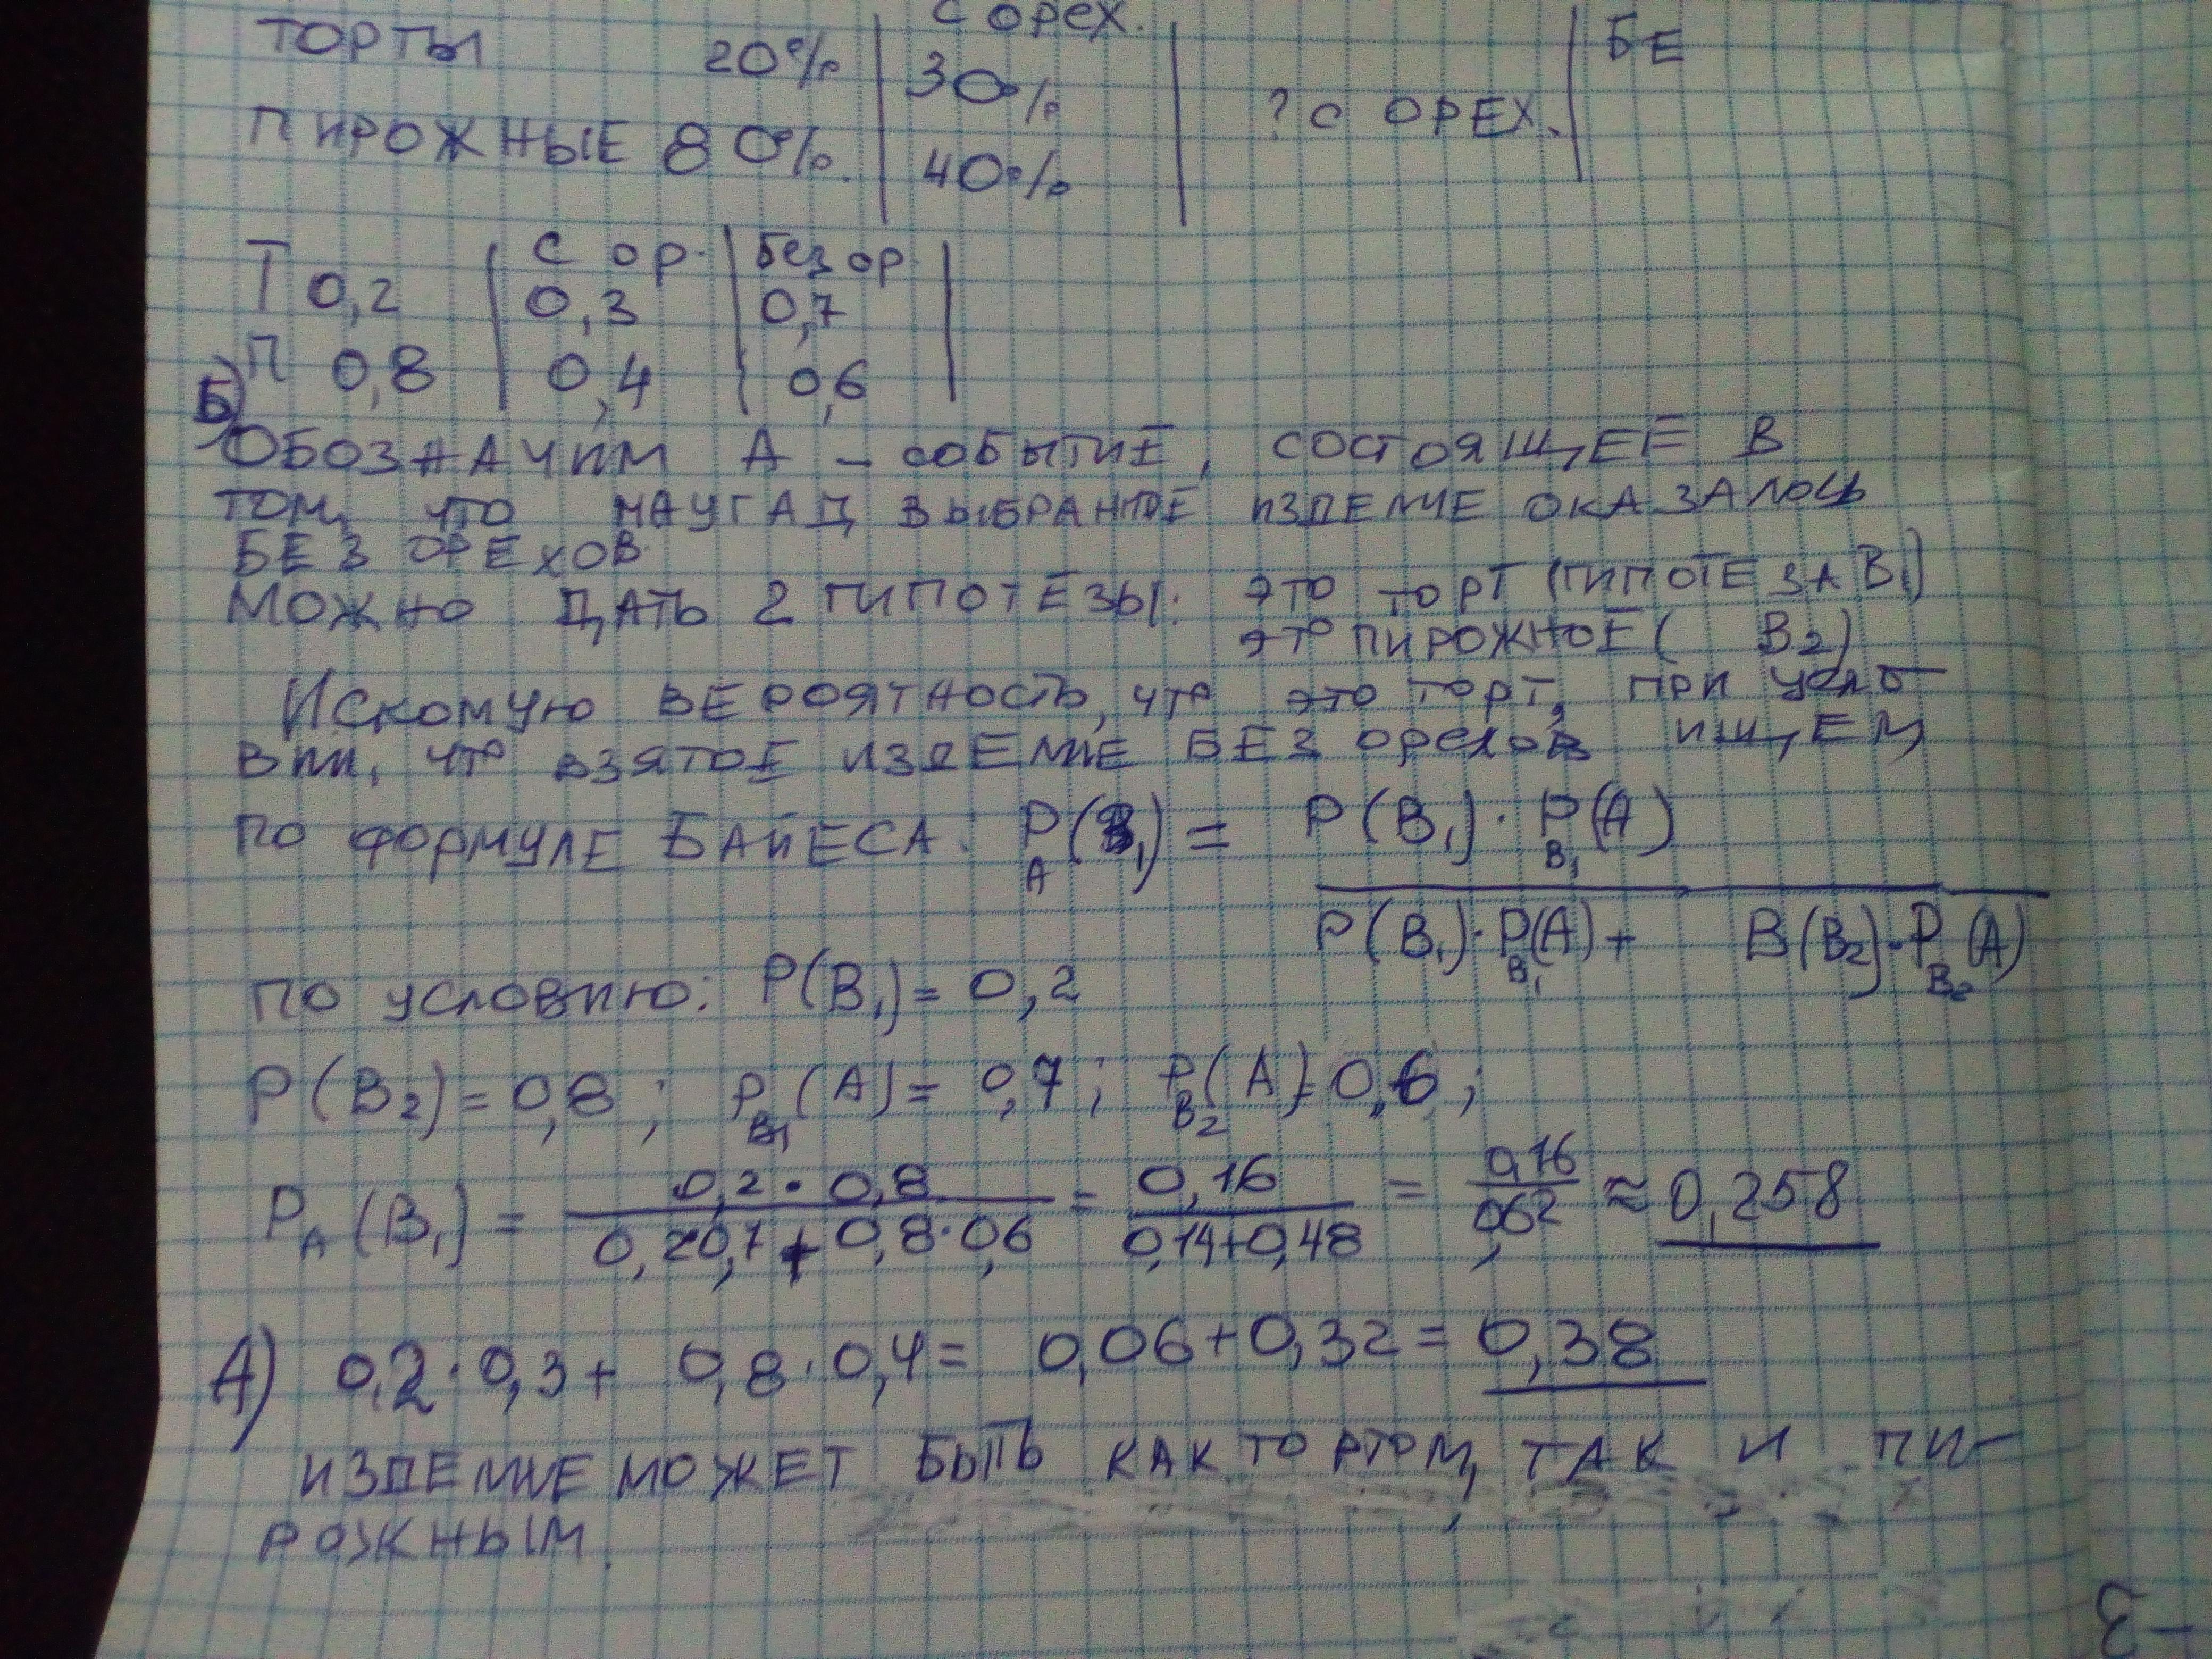 С ОРЕХ.
ТОРТЫ 20% 30% БЕ
ПИРОЖНЫЕ 80%. 40% ? С ОРЕХ.
С ОР. БЕЗ ОР.
Т 0,2 0,3 0,7
П 0,8 0,4 0,6
Б)
ОБОЗНАЧИМ А – СОБЫТИЕ, СОСТОЯЩЕЕ В
ТОМ, ЧТО НАУГАД ВЫБРАННОЕ ИЗДЕЛИЕ ОКАЗАЛОСЬ
БЕЗ ОРЕХОВ.
МОЖНО ДАТЬ 2 ГИПОТЕЗЫ: ЭТО ТОРТ (ГИПОТЕЗА B₁)
ЭТО ПИРОЖНОЕ ( B₂)
ИСКОМУЮ ВЕРОЯТНОСТЬ, ЧТО ЭТО ТОРТ, ПРИ УСЛО-
ВИИ, ЧТО ВЗЯТОЕ ИЗДЕЛИЕ БЕЗ ОРЕХОВ ИЩЕМ
ПО ФОРМУЛЕ БАЙЕСА: P_A(B₁) = P(B₁)·P_B₁(A)
P(B₁)·P_B₁(A) + B(B₂)·P_B₂(A)
ПО УСЛОВИЮ: P(B₁) = 0,2
P(B₂) = 0,8; P_B₁(A) = 0,7; P_B₂(A) = 0,6;
P_A(B₁) = 0,2·0,8 / 0,2·0,7 + 0,8·0,6 = 0,16 / 0,14+0,48 = 0,16 / 0,62 ≈ 0,258
А) 0,2·0,3 + 0,8·0,4 = 0,06 + 0,32 = 0,38
ИЗДЕЛИЕ МОЖЕТ БЫТЬ КАК ТОРТОМ, ТАК И ПИ-
РОЖНЫМ.